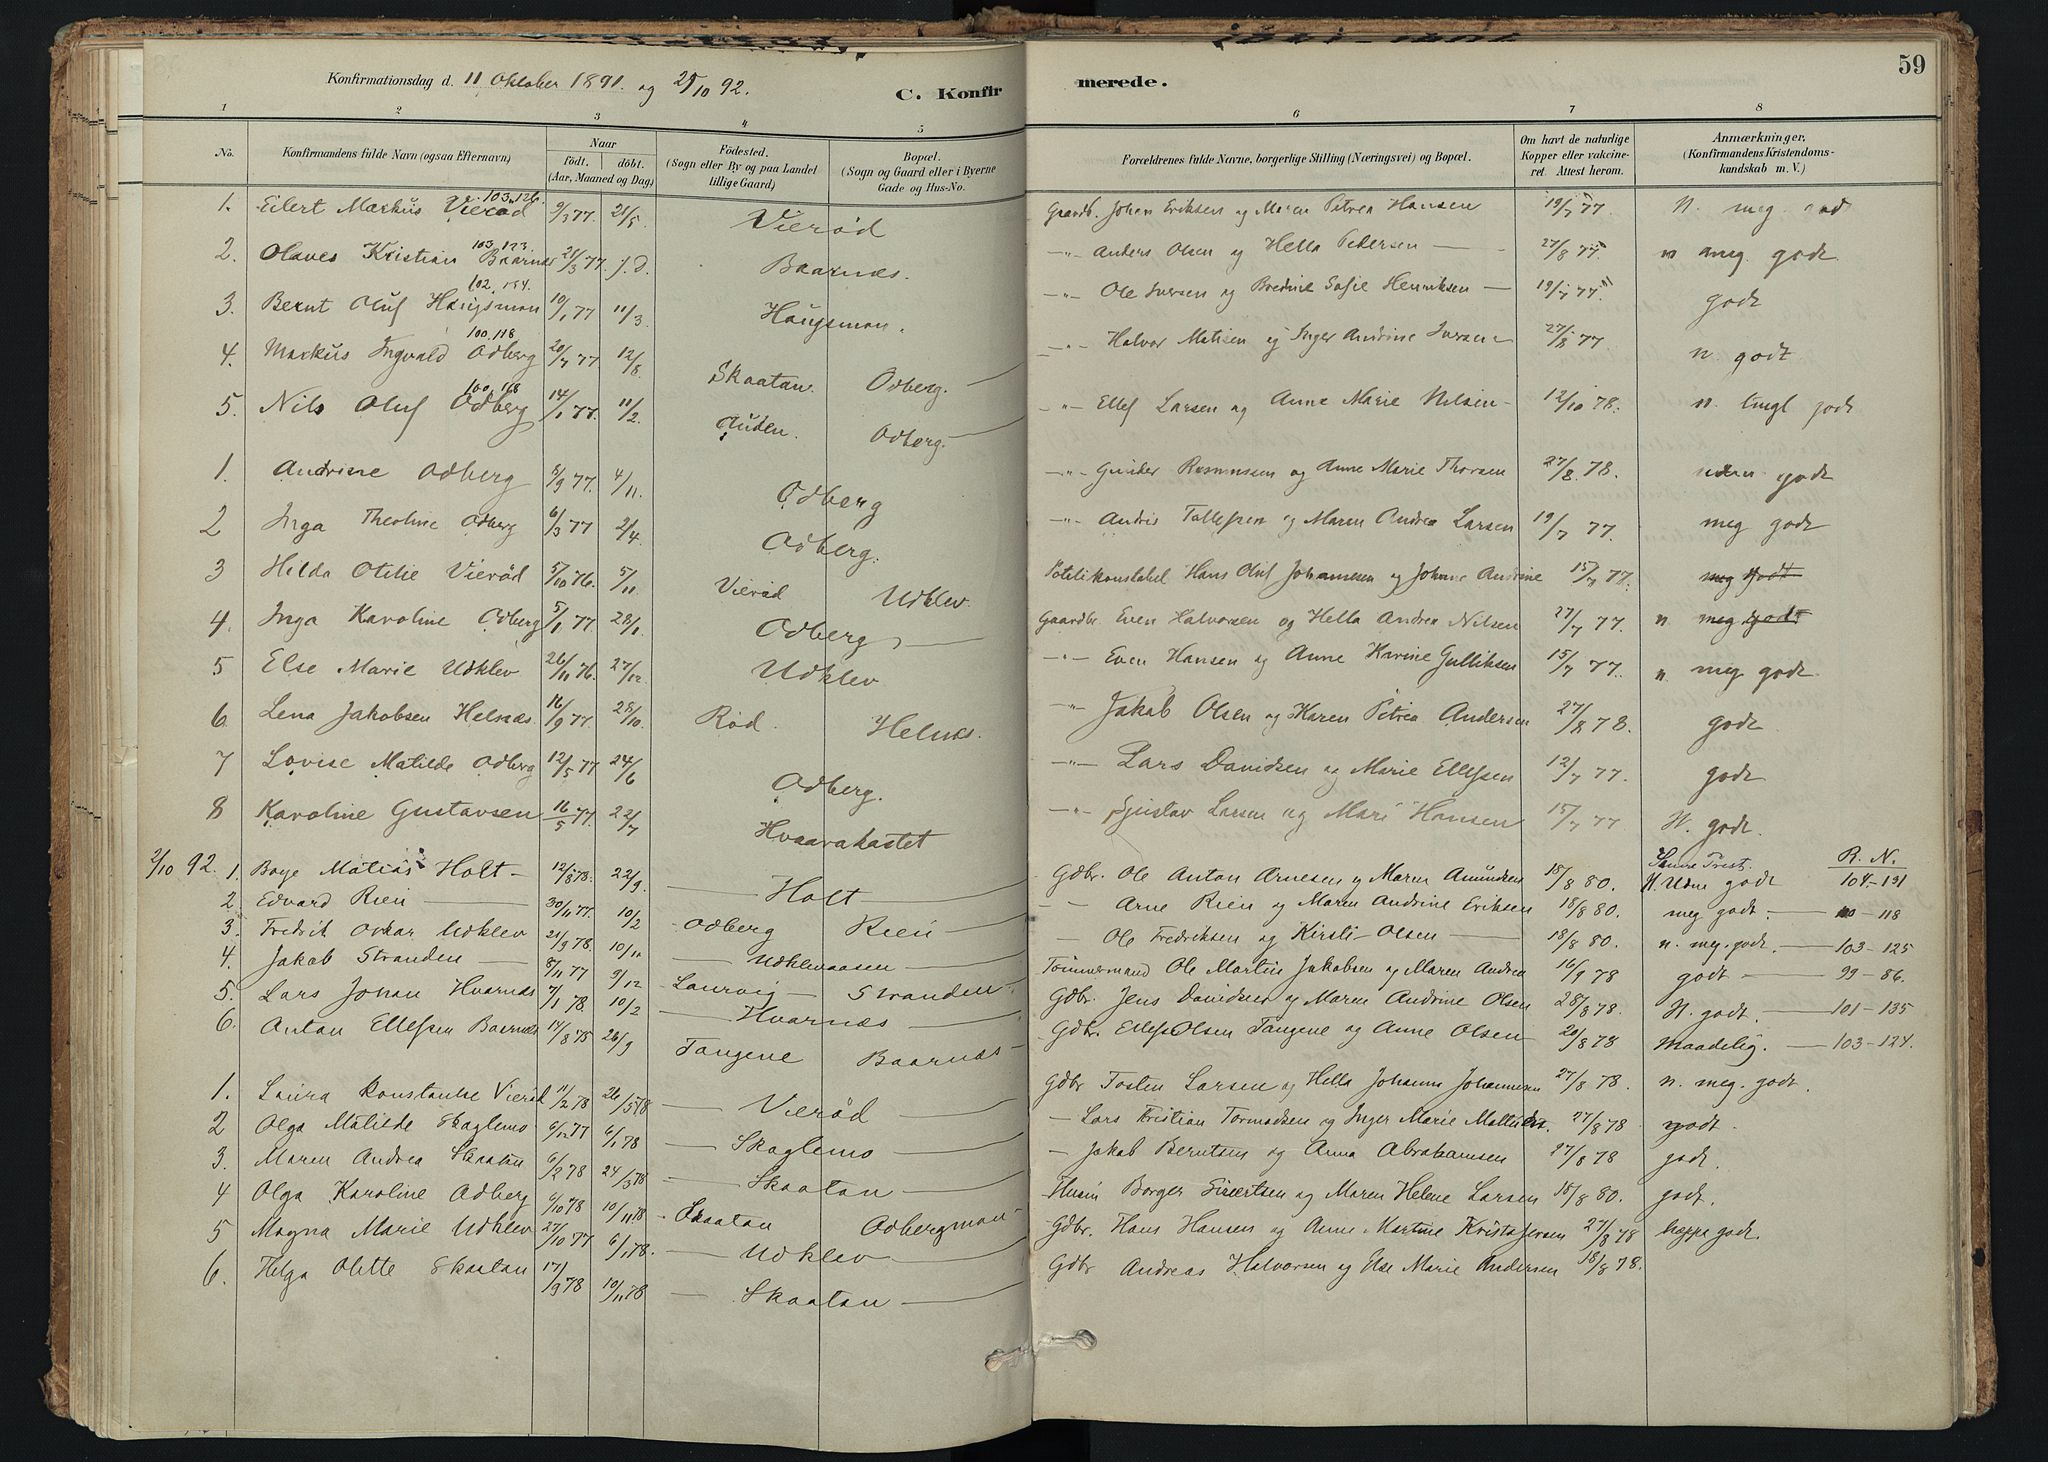 59
Konfirmationsdag d. 11 Oktober 1891. og 2/10 92. C. Konfirmerede.
1 2 3 4 5 6 7 8
No. Konfirmandens fulde Navn (ogsaa Efternavn) Naar födt. döbt. (Aar, Maaned og Dag) Födested. (Sogn eller By og paa Landet tillige Gaard) Bopæl. (Sogn og Gaard eller i Byerne Gade og Hus-No. Forældrenes fulde Navne, borgerlige Stilling (Næringsvei) og Bopæl. Om havt de naturlige Kopper eller vakcineret. Attest herom. Anmærkninger. (Konfirmandens Kristendomskundskab m. V.)
1. Eilert Markus Vierød 103.126. 9/3 77. 21/5 Vierød Gaardb. Johan Eriksen og Maren Petrea Hansen 19/7 77. N. meg. god
2. Olaves Kristian Baarnæs 103.123. 21/3 77. j. d. Baarnæs. -"- Anders Olsen og Hella Pedersen 27/8 77. n meg. godt
3. Bernt Oluf Haugsmon 102. 10/1 77 11/3. Haugsmon. -"- Ole Iversen og Bredine Sofie Henriksen 19/7 77. godt
4. Markus Ingvald Odberg 100.118 20/7 77 12/8. Skaatan Odberg. -"- Halvor Matisen og Inger Andrine Iversen 27/8 77 n. godt
5. Nils Oluf Odberg 100.118 14/1 77. 11/2. Auden. Odberg. -"- Ellef Larsen og Anne Marie Nilsen 12/10 78. n. godt
1. Andrine Odberg 8/9 77. 4/11. Odberg -"- Gunder Rasmussen og Anne Marie Thorsen 27/8. 78. uden godt
2 Inga Theoline Odberg 6/3 77 2/4. Odberg. -"- Andris Tollefsen og Maren Andrea Larsen 19/7 77. meg godt
3 Helda Otilie Vierød 5/10 76. 5/11. Vierød Udklev Hans Oluf Johannesen og Johanne Andrine 15/7 77. meg godt
4. Inga Karoline Odberg 5/1 77. 28/1. Odberg Gaardbr Even Halvorsen og Hella Andrea Nilsen 27/7 77. n. meg godt
5 Else Marie Udklev 26/11 76. 27/12. Udklev -"- Even Hansen og Anne Karine Gulliksen 15/7 77. n. meg godt
6. Lena Jakobsen Helnæs. 16/9 77. 28/10. Rød. Helnæs. -"- Jakob Olsen og Karen Petrea Andersen 27/8 78. godt
7 Lovise Matilde Odberg 12/5 77 24/6 Odberg. -"- Lars Davidsen og Marie Ellefsen 12/7 77. godt
8 Karoline Gustavsen 16/5 77. 22/7 Hvaarakastet -"- Gustav Larsen og Mari Hansen 15/7 77 N. godt.
R. N.
2/10 92. 1. Boye Matias Holt 12/8 78. 22/9. Holt Gdbr. Ole Anton Arnesen og Maren Amundsen 18/8 80. N. Udm godt 104-131
2. Edvard Rien 30/11 77. 10/2 Odberg Rien - Arne Rien og Maren Andrine Eriksen 18/8 80. meg godt. 100-118
3. Fredrik Oskar Udklev 21/9 78. 10/11 Udklevaasen - Ole Fredriksen og Kirsti Olsen 18/8 80. n. meg. godt. 103-125
4. Jakob Stranden 8/11 77 9/12 Laurvig Stranden Tømmermand Ole Martin Jakobsen og Maren Andrea 16/9 78 godt 99-86.
5. Lars Johan Hvarnæs 7/1 78. 10/2 Hvarnæs Gdbr. Jens Davidsen og Maren Andrine Olsen 28/8 78. N. godt. 101-135
6. Anton Ellefsen Baarnæs 14/8 75 26/9 Tangene Baarnæs Gdbr. Ellef Olsen Tangene og Anne Olsen 20/8 78 maadelig. 103-124.
1. Laura Konstanse Vierød 11/2 78 26/5 78 Vierød Gdbr Tosten Larsen og Hella Johanne Johannesen 27/8 78. n. meg. godt.
2 Olga Matilde Skaglemo 6/12 77 6/1 78 Skaglemo - Lars Kristian Tormodsen og Inger Marie 27/8 78 godt.
3. Maren Andrea Skaatan 6/2 78 24/3 78 Skaatan - Jakob Berntsen og Anna Abrahamsen 27/8 78 godt.
4 Olga Karoline Adberg 6/10 78 10/11 78 Skaatan Odbergmon Husm Borger Sivertsen og Maren Helene Larsen 18/8 80. godt.
5 Magna Marie Udklev 27/10 77 6/1 78. Udklev Gdbr. Hans Hansen og Anne Martine Kristofersen 27/8 78 neppe godt.
6. Helga Olette Skaatan 17/9 78 10/11 78 Skaatan Gdbr Andreas Halvorsen og Else Marie Andersen 18/8 78.